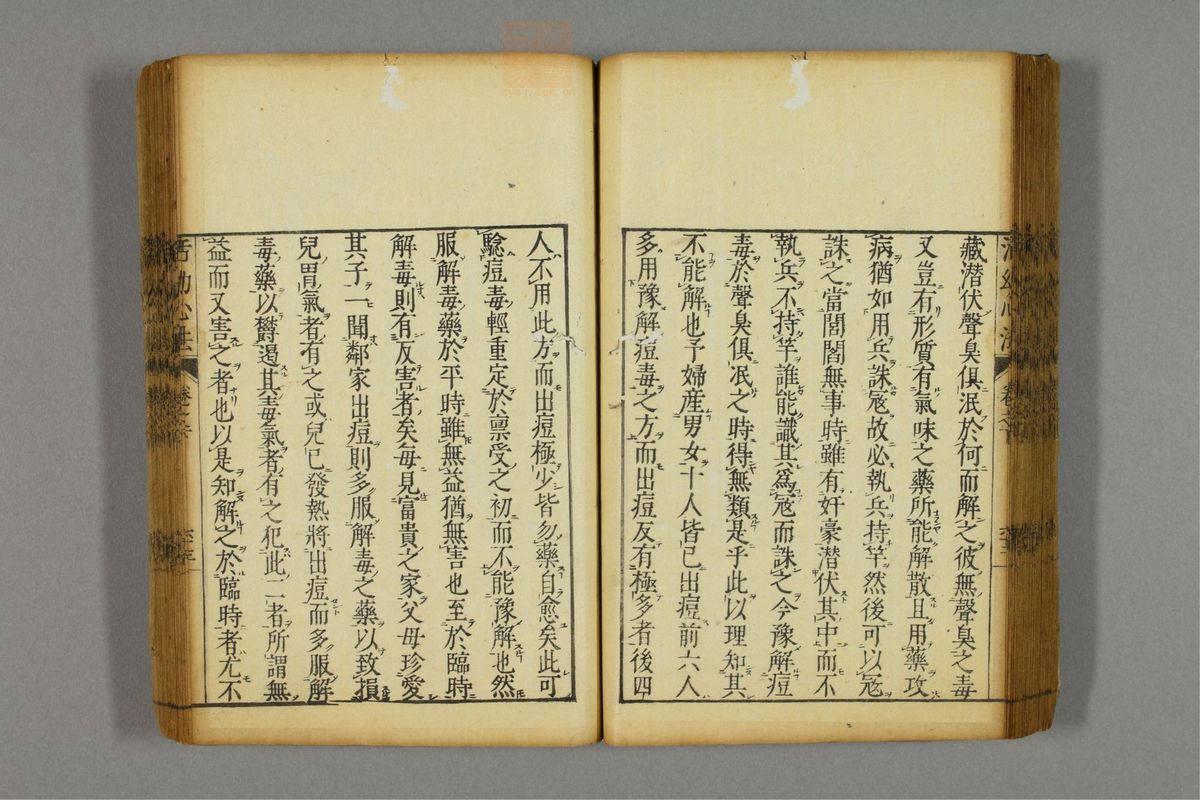 藏潜伏聲臭俱泯於何而解之彼無聲臭之毒
又豈有形質有氣味之藥所能解散且用藥攻
病猶如用兵誅寇故必執兵持竿然後可以寇
誅之當閭閻無事時雖有奸豪潜伏其中而不
執兵不持竿誰能識其爲寇而誅之今豫解痘
毒於聲臭俱泯之時得無類是乎此以理知其
不能解也予婦産男女十人皆已出痘前六人
多用豫解痘毒之方而出痘反有極多者後四
人不用此方而出痘極少皆勿藥自愈矣此可
騐痘毒輕重定於禀受之初而不能豫解也然
服解毒藥於平時雖無益猶無害也至於臨時
解毒則有反害者矣毎見富貴之家父母珍愛
其子一聞鄰家出痘則多服解毒之藥以致損
兒胃氣者有之或兒已發熱將出痘而多服解
毒藥以欝遏其毒氣者有之犯此二者所謂無
益而又害之者也以是知解之於臨時者尤不
活幼心法